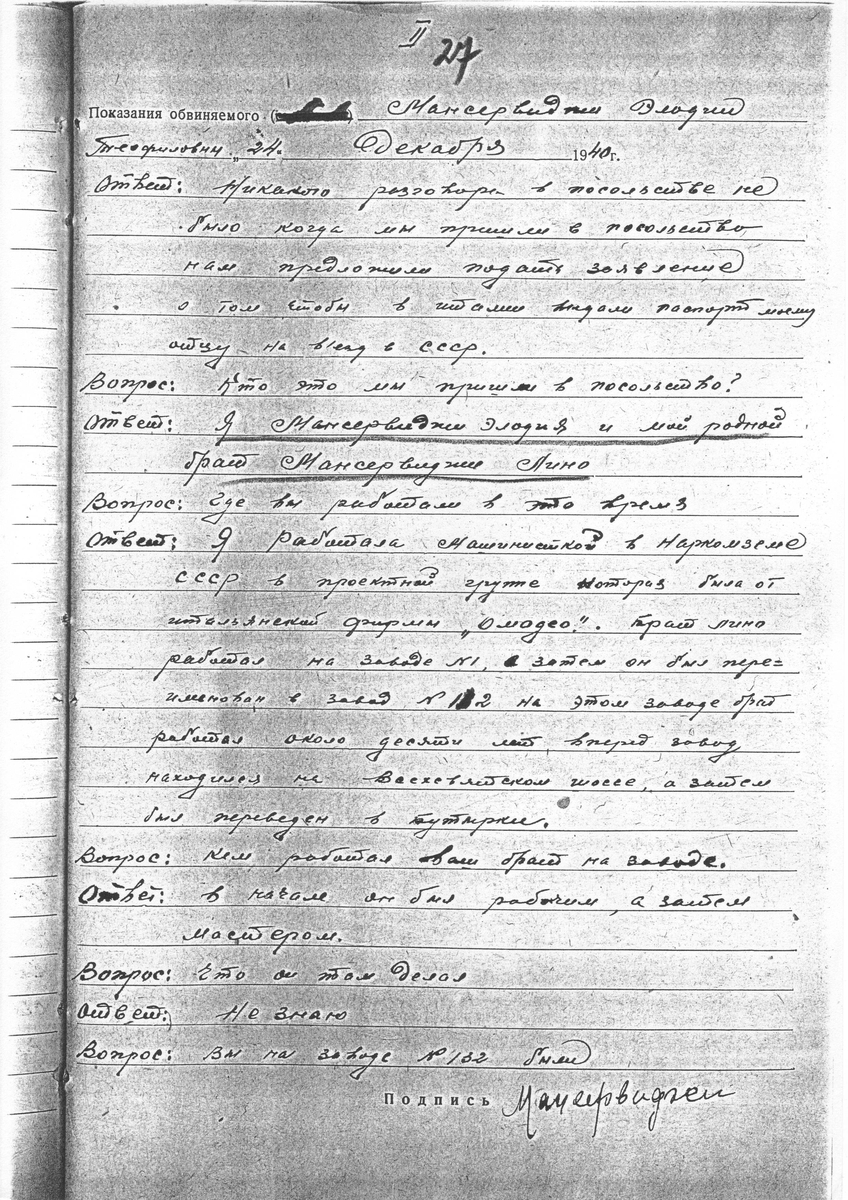 II
27
Показания обвиняемого Мансервиджи Элодии
Теофиловны „24." Декабря 1940 г.
Ответ: Никакого разговора в посольстве не
было когда мы пришли в посольство
нам предложили подать заявление
о том чтобы в италии выдали паспорт моему
отцу на в'езд в СССР.
Вопрос: Кто это мы пришли в посольство?
Ответ: Я Мансервиджи Элодия и мой родной
брат Мансервиджи Лино
Вопрос: Где вы работали в это время
Ответ: Я Работала Машинисткой в Наркомземе
СССР в проектной группе которая была от
итальянской фирмы „Омодео". Брат Лино
работал на заводе №1, а затем он был пере=
именован в завод № 132 на этом заводе брат
работал около десяти лет, вперед завод
находился на Васхсвятском шоссе, а затем
был переведен в Бутырки.
Вопрос: Кем работал ваш брат на заводе.
Ответ: в начале он был рабочим, а затем
мастером.
Вопрос: Что он там делал
Ответ: Не знаю
Вопрос: Вы на заводе №132 были
Подпись Мансервиджи